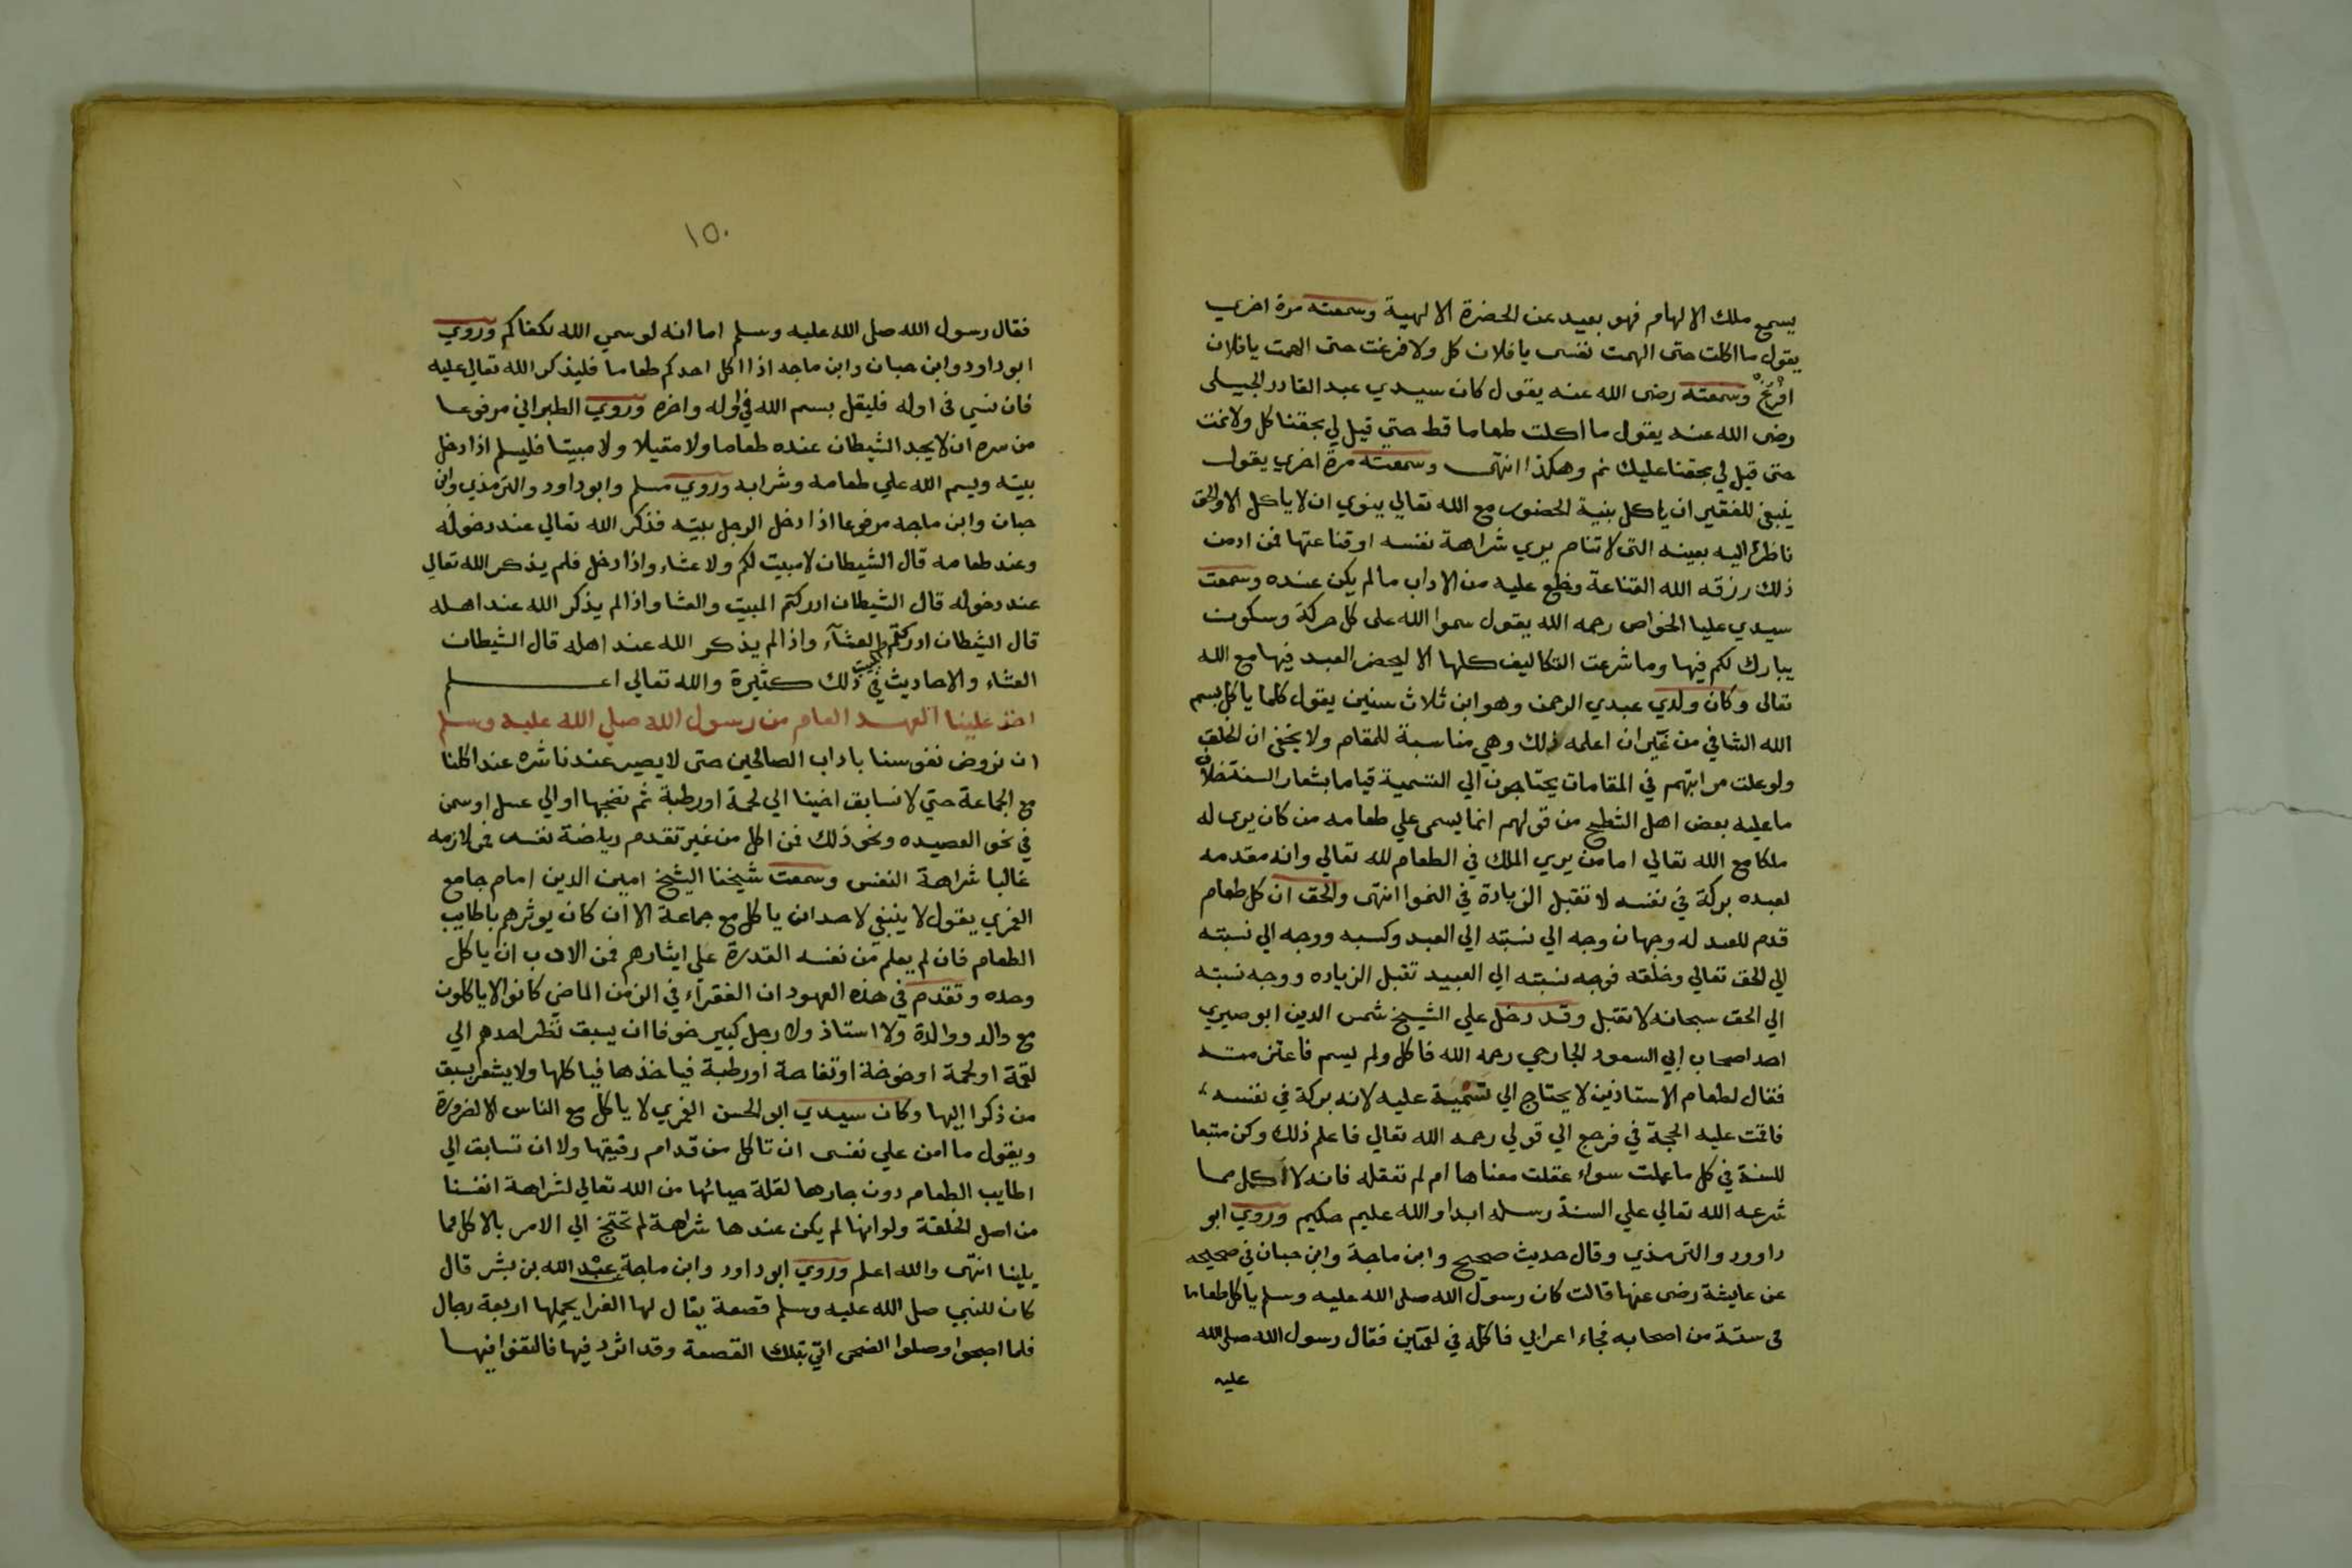 يسمع ملك الالهام فهو بعيد عن الحضرة الالهية وسمعته مرة اخري
يقول ما اكلت حتى الهمت نفسى يا فلان كل ولا فرغت حتى الهمت يا فلان
افرغ وسمعته رضى الله عنه يقول كان سيدي عبد القادر الجيلى
رضى الله عنه يقول ما اكلت طعاما قط حتي قيل لي بحقنا كل ولا نمت
حتى قيل لي بحقنا عليك نم وهكذا انتهى وسمعته مرة اخري يقول
ينبغى للفقير ان ياكل بنية الحضور مع الله تعالي ينوي ان لا ياكل الا والحق
ناظر اليه بعينه التى لا تنام يري شراهة نفسه او قناعتها فمن ادمن
ذلك رزقه الله القناعة وخلع عليه من الاداب ما لم يكن عنده وسمعت
سيدي عليا الخواص رحمه الله يقول سموا الله على كل حركة وسكون
يبارك لكم فيها وما شرعت التكاليف كلها الا ليحضر العبد فيها مع الله
تعالى وكان ولدي عبدي الرحمن وهو ابن ثلاث سنين يقول كلما ياكل بسم
الله الشافي من غير ان اعلمه ذلك وهي مناسبة للمقام ولا يخفى ان الخلق
ولو علت مراتبهم في المقامات يحتاجون الي التسمية قياما بشعار السنة
ما عليه بعض اهل الشطح من قولهم انما يسمى علي طعامه من كان يرى له
ملكا مع الله تعالي اما من يري الملك في الطعام لله تعالي وانه مقدمه
لعبده بركة في نفسه لا تقبل الزيادة في النموا انتهى والحق ان كل طعام
قدم للعبد له وجهان وجه الي نسبته الي العبد وكسبه ووجه الي نسبته
الي الحق تعالي وخلقه فوجه نسبته الي العبيد تقبل الزياده ووجه نسبته
الي الحق سبحانه لا تقبل وقد دخل علي الشيخ شمس الدين ابوصيري
احد اصحاب ابي السعود الجارحي رحمه الله فاكل ولم يسم
فقال لطعام الاستاذين لا يحتاج الي تسمية عليه لانه بركة في نفسه
فاقمت عليه الحجة في فرجع الي قولي رحمه الله تعالي فاعلم ذلك وكن متبعا
للسنة في كل ما عملت سواء عقلت معناها ام لم تعقله فانه لا اكمل مما
شرعه الله تعالي علي السنة رسله ابدا والله عليم حكيم وروي ابو
داوود والترمذي وقال حديث صحيح وابن ماجة وابن حبان في صحيحه
عن عايشة رضى عنها قالت كان رسول الله صلى الله عليه وسلم ياكل طعاما
فى ستة من اصحابه فجاء اعرابي فاكله في لقمتين فقال رسول الله صلى الله
عليه
١٥٠
فقال رسول الله صلى الله عليه وسلم اما انه لو سمي الله لكفاكم وروي
ابو داود وابن حبان وابن ماجه اذا اكل احدكم طعاما فليذكر الله تعالي عليه
فان نسي فى اوله فليقل بسم الله في اوله واخره وروي الطبراني مرفوعا
من سره ان لا يجد الشيطان عنده طعاما ولا مقيلا ولا مبيتا فليسلم اذا دخل
بيته ويسم الله علي طعامه وشرابه وروي مسلم وابو داود والترمذي وابن
حبان وابن ماجه مرفوعا اذا دخل الرجل بيته فذكر الله تعالي عند دخوله
وعند طعامه قال الشيطان لا مبيت لكم ولا عشاء واذا دخل فلم يذكر الله تعالي
عند دخوله قال الشيطان ادركتم المبيت والعشا واذا لم يذكر الله عند اهله
قال الشيطان ادركتم العشآء واذا لم يذكر الله عند اهله قال الشيطان
العشاء والاحاديث في ذلك كثيرة والله تعالي اعلم
اخذ علينا العهد العام من رسول الله صلي الله عليه وسلم
ان نروض نفوسنا باداب الصالحين حتى لا يصير عندنا شره عند اكلنا
مع الجماعة حتي لا نسابق اخينا الي لحمة او رطبة ثم نضجها او الي عسل او سمن
في نحو العصيده ونحو ذلك فمن اكل من غير تقدم رياضة نفسه فمن لازمه
غالبا شراهة النفس وسمعت شيخنا الشيخ امين الدين امام جامع
الغمري يقول لا ينبغي لاحد ان ياكل مع جماعة الا ان كان يوثرهم باطايب
الطعام فان لم يعلم من نفسه القدرة علي ايثارهم فمن الادب ان ياكل
وحده وتقدم في هذه العهود ان الفقرآء في الزمن الماضي كانوا لا ياكلون
مع والد ووالدة ولا استاذ ولا رجل كبير خوفا ان يسبق نظر احدهم الي
لقمة او لحمة او خوخة او تفاحة او رطبة فياخذها فياكلها ولا يشعر بسبق
من ذكرا اليها وكان سيدي ابو الحسن الغمري لا ياكل مع الناس الا لضرورة
ويقول ما امن علي نفسى ان تاكل من قدام رفيقها ولا ان تسابق الي
اطايب الطعام دون جارها لقلة حيائها من الله تعالي لشراهة انفسنا
من اصل الخلقة ولو انها لم يكن عندها شراهة لم تحتج الي الامر بالاكل مما
يلينا انتهى والله اعلم وروي ابو داود وابن ماجة عبد الله بن بشر قال
كان للنبي صلى الله عليه وسلم قصعة يقال لها الغرا يحملها اربعة رجال
فلما اصبحوا وصلوا الضحى اتي بتلك القصعة وقد اثرد فيها فالتفوا فيها